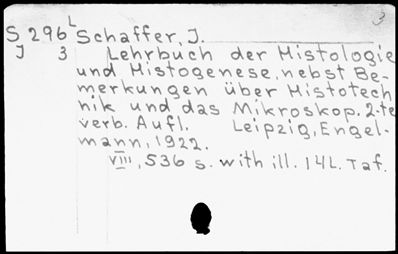 3
S 296 L Schaffer, J.
J 3 Lehrbuch der Histologie
und Histogenese, nebst Be-
merkungen über Histotech
nik und das Mikroskop. 2-te
verb. Aufl. Leipzig, Engel-
mann, 1922.
VIII, 536 s. with ill. 14 L. Taf.